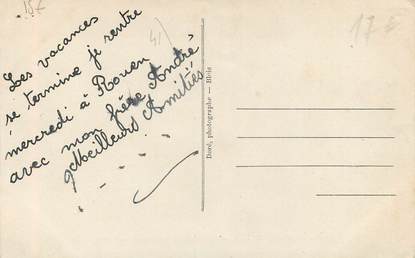 Les vacances
se termine je rentre
mercredi à Rouen
avec mon frère André
Meilleurs Amitiés
Doré, photographe — Blois
41
17 €